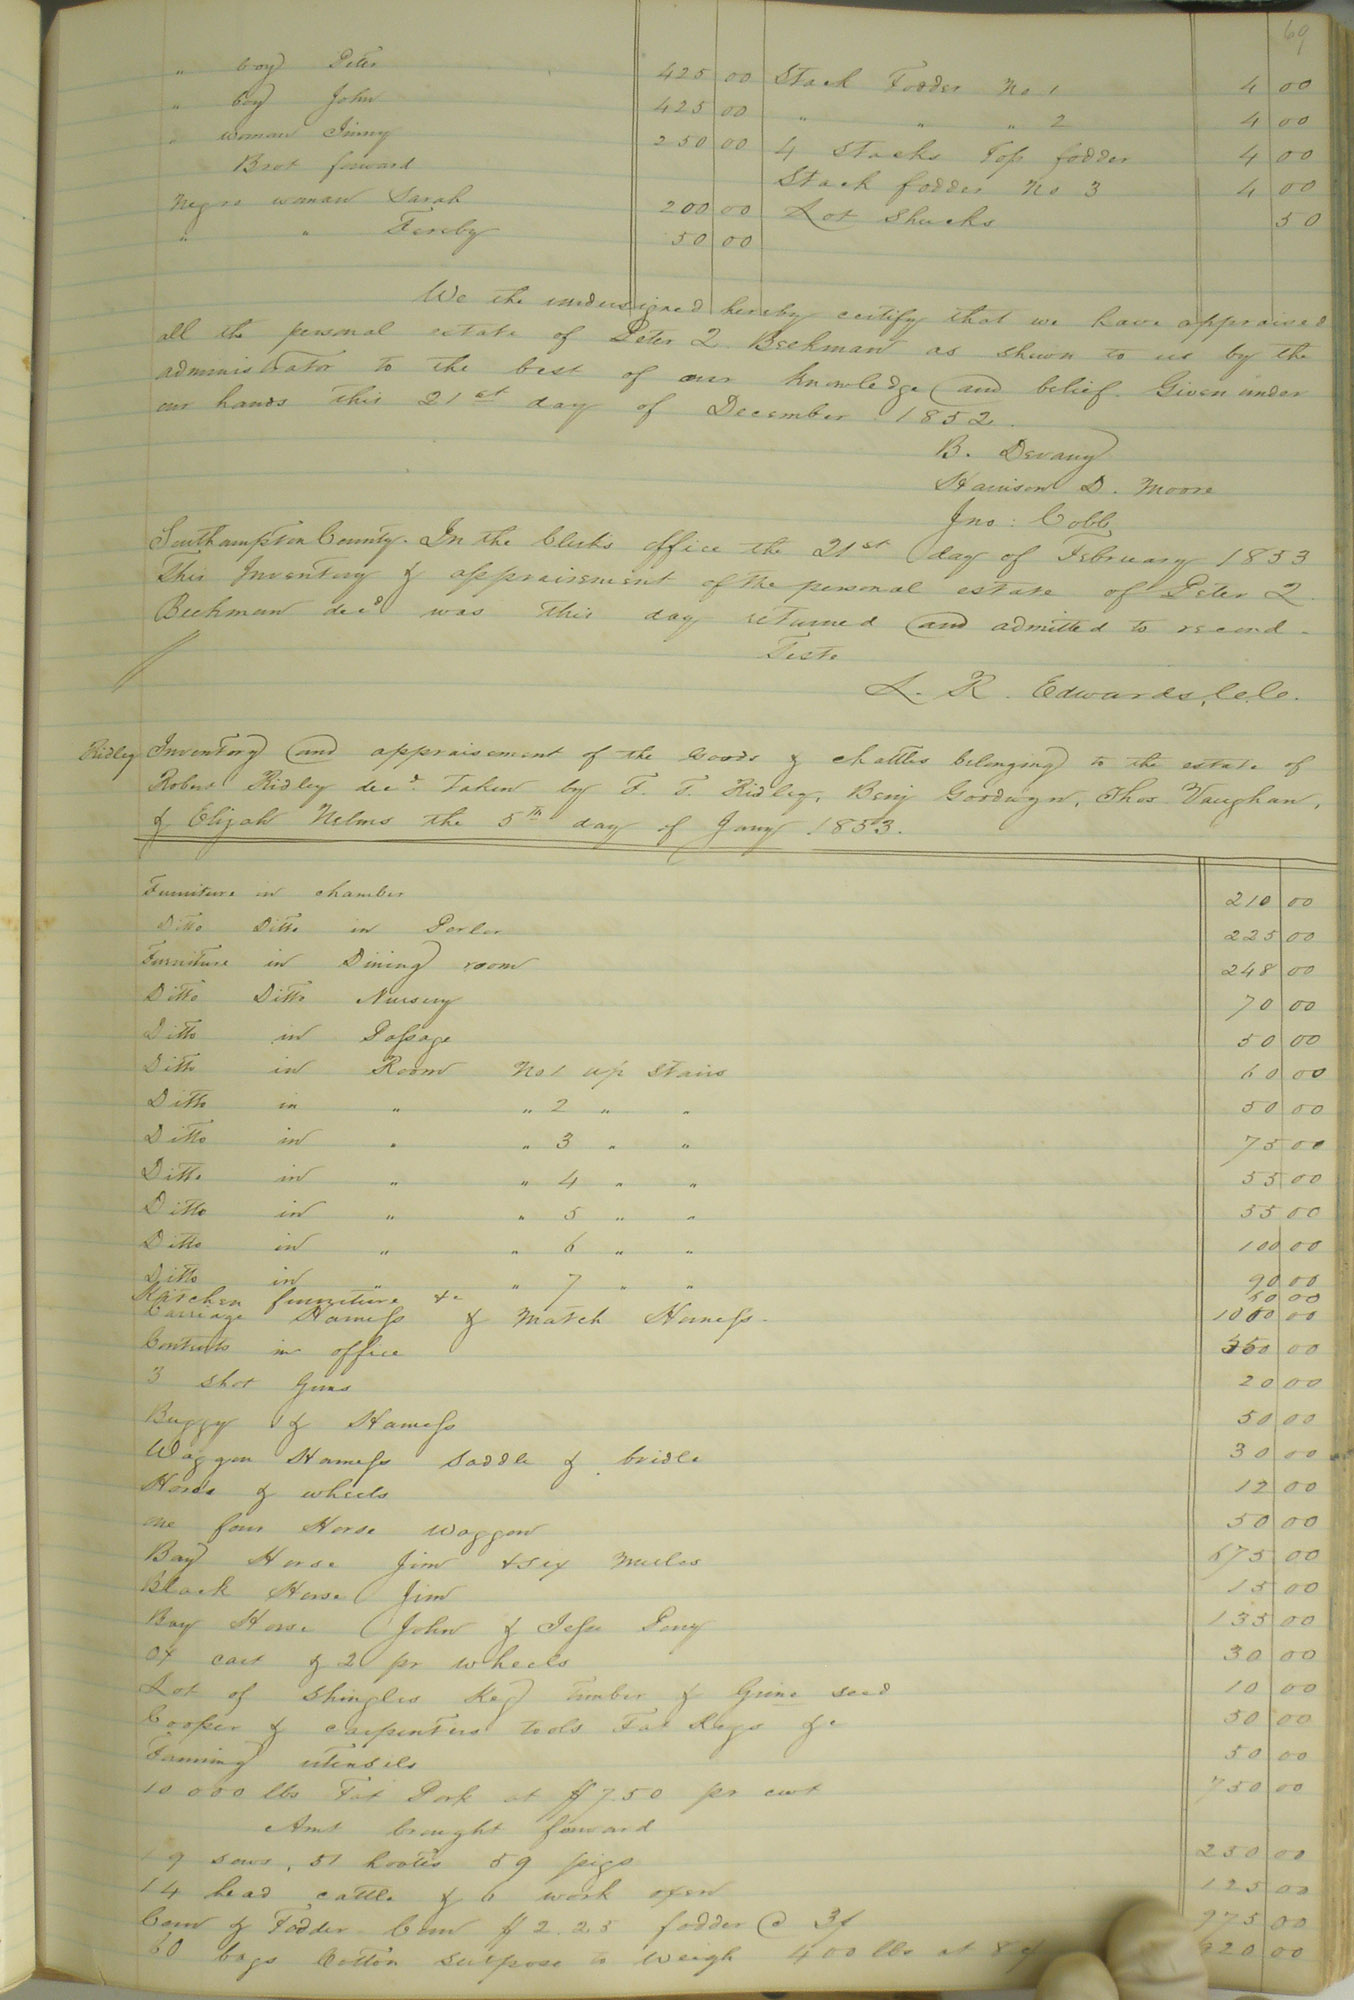 69
" boy Peter 425 00 Stack Fodder No 1 4 00
" boy John 425 00 " " " 2 4 00
" woman Jinny 250 00 4 Stacks Top fodder 4 00
Brot forward Stack fodder No 3 4 00
Negro woman Sarah 200 00 Lot Shucks 50
" " Fereby 50 00
We the undersigned hereby certify that we have appraised
all the personal estate of Peter Q. Beekman as shewn to us by the
administrator to the best of our knowledge and belief. Given under
our hands this 21st day of December 1852.
B. Devany
Harrison D. Moore
Jno: Cobb
Southampton County. In the Clerks office the 21st day of February 1853
This Inventory & appraisement of the personal estate of Peter Q.
Beekman decd was this day returned and admitted to record.
Teste
L. R. Edwards, C.C.
Ridley Inventory and appraisement of the goods & chattles belonging to the estate of
Robert Ridley decd. Taken by F. T. Ridley, Benj Goodwyn, Thos Vaughan,
& Elijah Nelms the 5th day of Jany 1853.
Furniture in chamber 210 00
Ditto Ditto in Parler 225 00
Furniture in Dining room 248 00
Ditto Ditto Nursery 70 00
Ditto in Passage 50 00
Ditto in Room No 1 up Stairs 60 00
Ditto in " " 2 " " 50 00
Ditto in " " 3 " " 75 00
Ditto in " " 4 " " 55 00
Ditto in " " 5 " " 55 00
Ditto in " " 6 " " 100 00
Ditto in " " 7 " " 90 00
Kitchen furniture &c 60 00
Carriage Harness & match Harness. 1000 00
Contents in office 00
3 shot Guns 20 00
Buggy & Harness 50 00
Waggon Harness saddle & bridle 30 00
Horse & wheels 12 00
one four Horse waggon 50 00
Bay Horse Jim & six mules 675 00
Black Horse Jim 15 00
Bay Horse John & Jesse Pony 135 00
Ox cart & 2 pr wheels 30 00
Lot of Shingles Keg timber & seed 10 00
Cooper & carpenters tools Fat Kegs &c 50 00
Farming utensils 50 00
10000 lbs Fat Pork at $7.50 pr cwt 750 00
Amt brought forward
19 sows, 51 hoates 59 pigs 250 00
14 head cattle & 6 work oxen 125 00
Corn & Fodder Corn $2.25 fodder @ 3/ 975 00
60 bags Cotton suppose to weigh 400 lbs at 8 ¢ 920 00